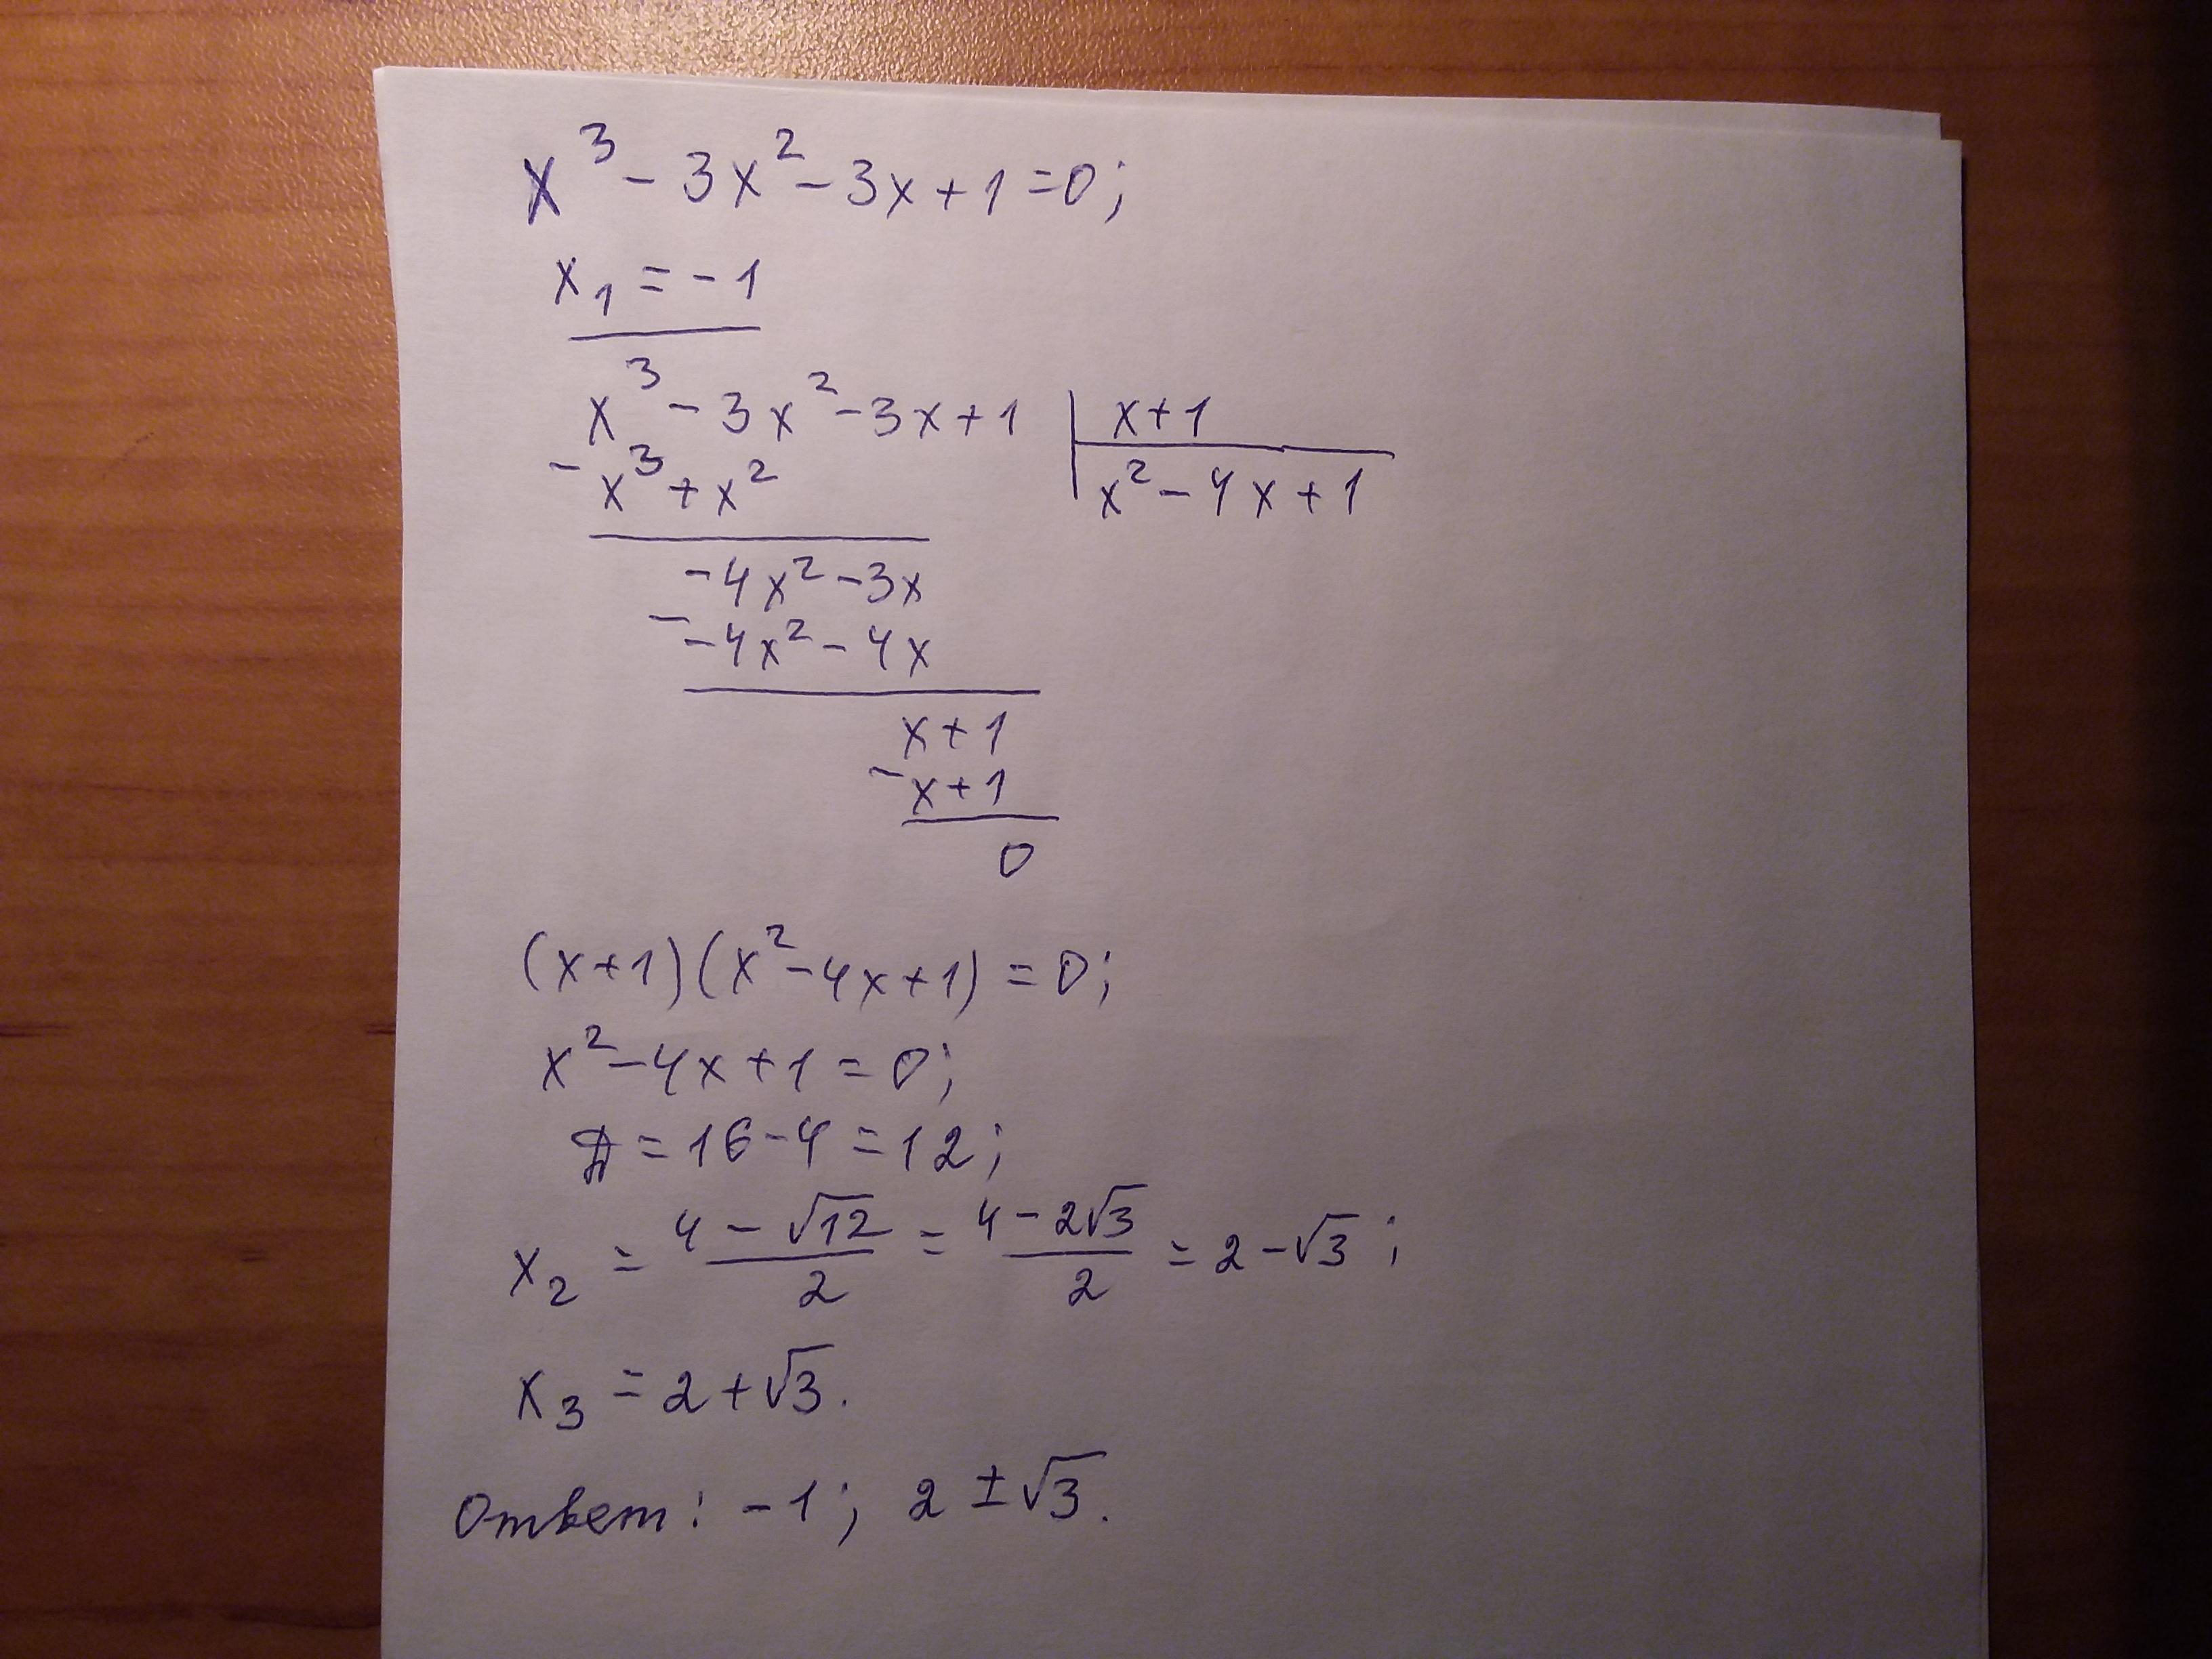 x³ - 3x² - 3x + 1 = 0;
x₁ = -1
x³ - 3x² - 3x + 1 | x + 1
- x³ + x² | x² - 4x + 1
-4x² - 3x
- -4x² - 4x
x + 1
- x + 1
0
(x + 1)(x² - 4x + 1) = 0;
x² - 4x + 1 = 0;
Д = 16 - 4 = 12;
x₂ = (4 - √12)/2 = (4 - 2√3)/2 = 2 - √3;
x₃ = 2 + √3.
Ответ: -1; 2 ± √3.